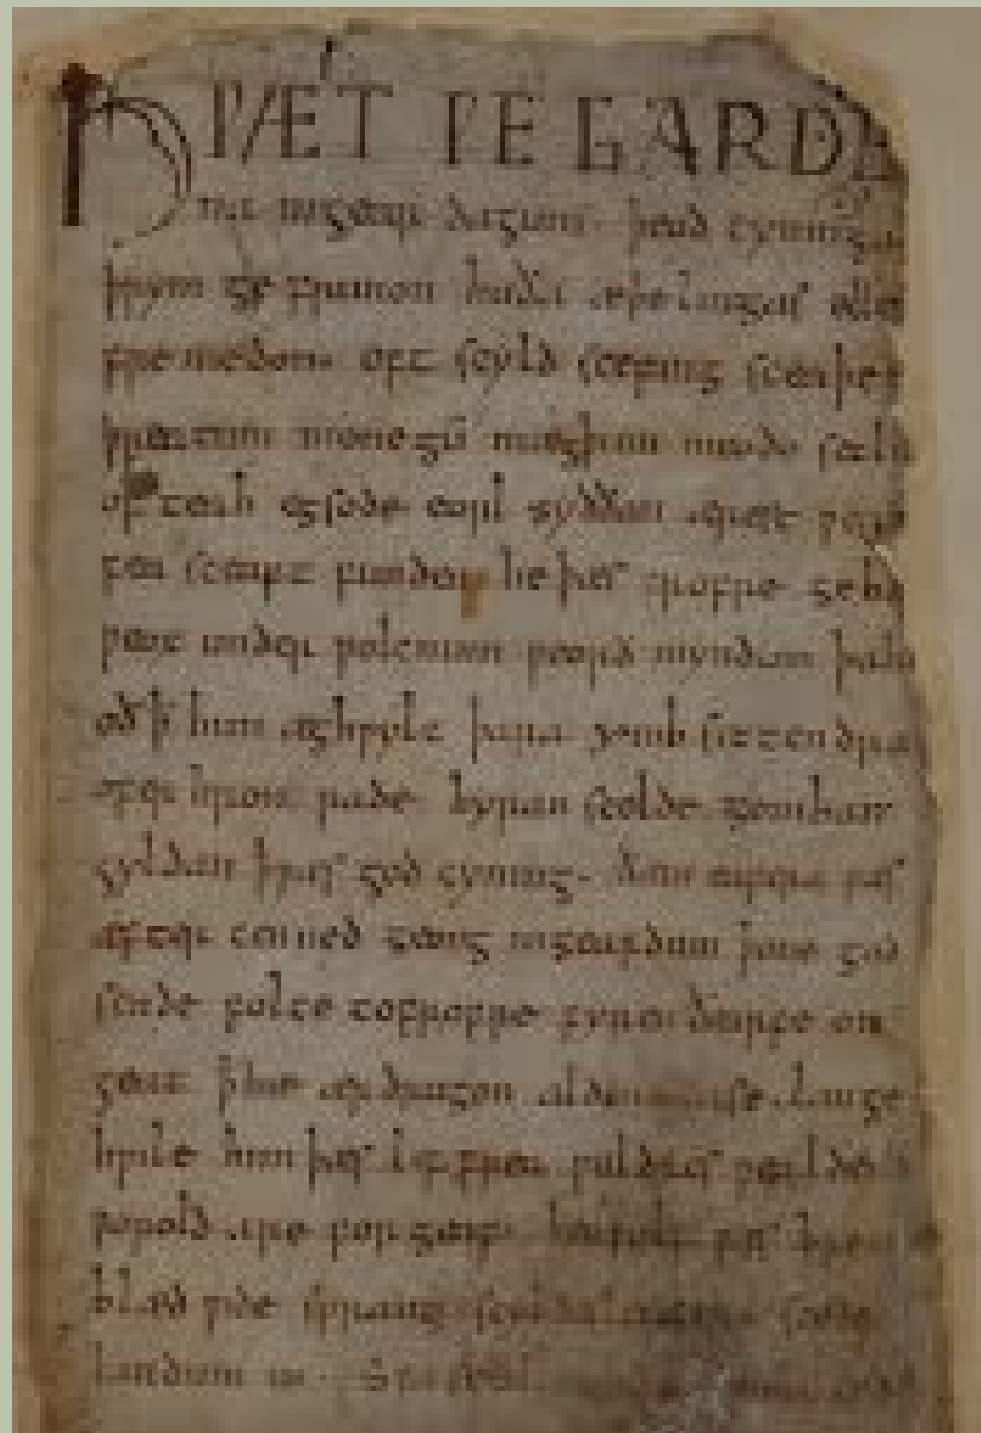 HǷÆT ǷE GARDE
na ingear dagum. þeod cyninga
þrym ge frunon huða æþelingas elle
fremedon. oft scyld scefing sceaþen
þreatum monegū mægþum meodo setla
of teah egsode eorl syððan ærest ƿearð
fea sceaft funden he þæs frofre geba
ƿeox under ƿolcnum ƿeorð myndum þah
oð ꝥ him æghƿylc þara ymb sittendra
ofer hron rade hyran scolde gomban
gyldan ꝥ ƿæs god cyning. ðæm eafera ƿæs
æfter cenned geong in geardum þone god
sende folce to frofre fyren ðearfe on
geat ꝥ hie ær drugon aldor ase. lange
hƿile him þæs lif frea ƿuldres ƿealdend
ƿorold are for geaf. beoƿulf ƿæs breme
blæd ƿide sprang scyldes eafera scede
landum in.